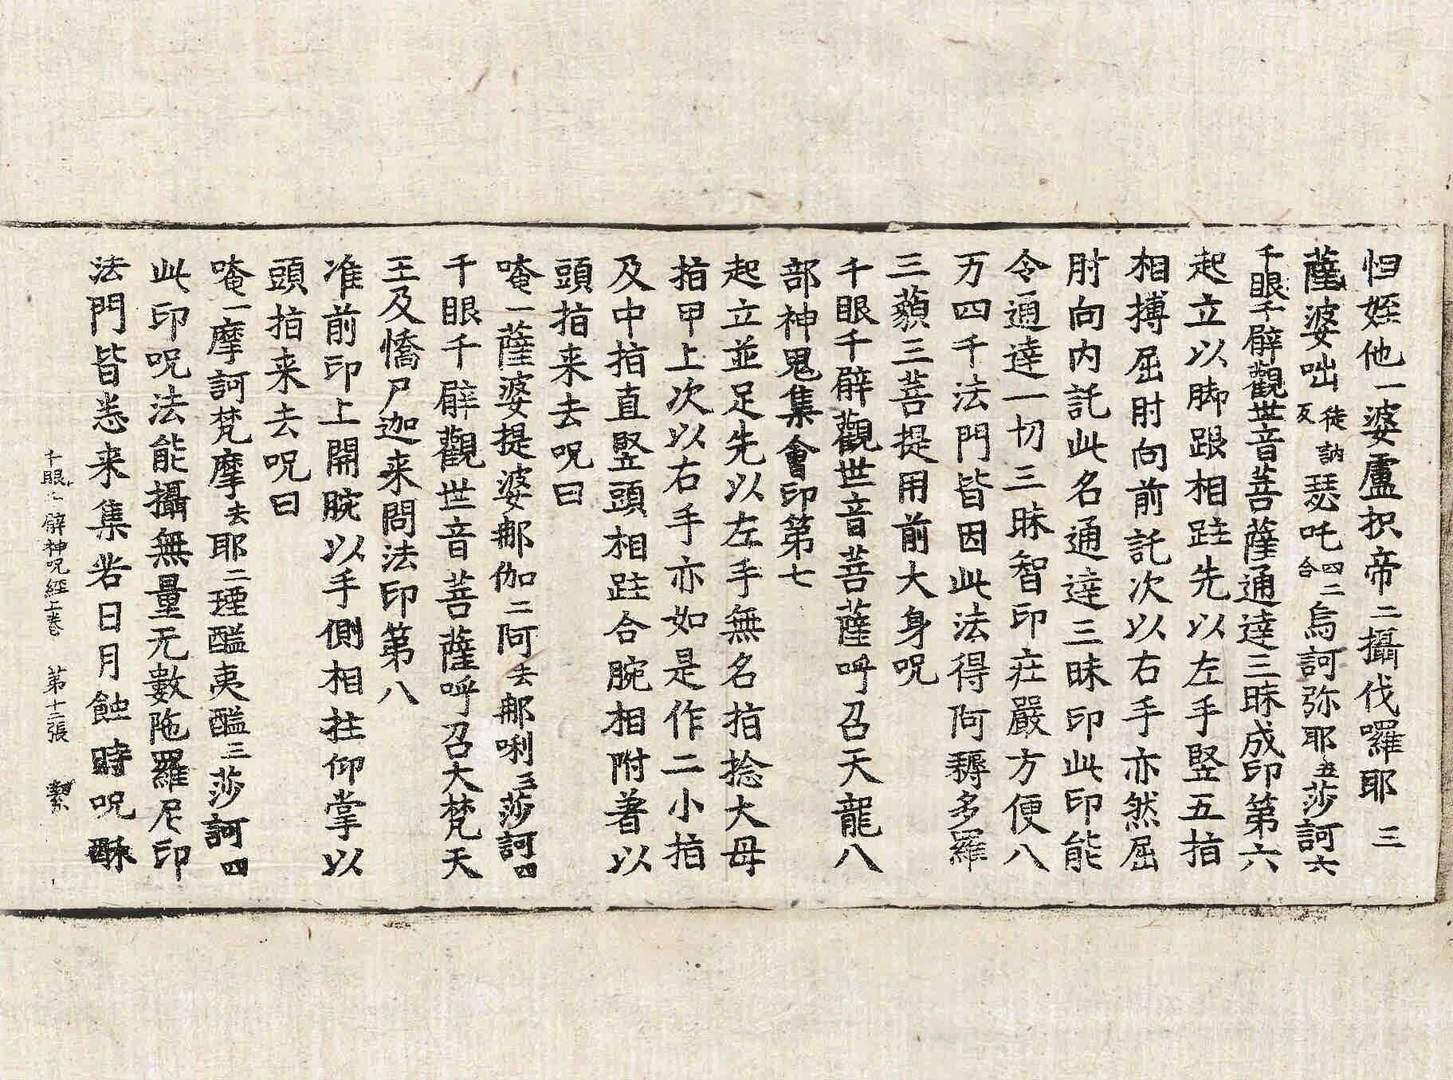 怛姪他一婆盧枳帝二攝伐囉耶三
薩婆咄徒訥反瑟吒四二合烏訶弥耶五莎訶六
千眼千臂觀世音菩薩通達三昧成印第六
起立以脚跟相跓先以左手竪五指
相搏屈肘向前託次以右手亦然屈
肘向内託此名通達三昧印此印能
令通達一切三昧智印莊嚴方便八
万四千法門皆因此法得阿耨多羅
三藐三菩提用前大身呪
千眼千臂觀世音菩薩呼召天龍八
部神鬼集會印第七
起立並足先以左手無名指捻大母
指甲上次以右手亦如是作二小指
及中指直竪頭相跓合腕相附著以
頭指来去呪曰
唵一薩婆提婆那伽二阿去那唎三莎訶四
千眼千臂觀世音菩薩呼召大梵天
王及憍尸迦来問法印第八
准前印上開腕以手側相拄仰掌以
頭指来去呪曰
唵一摩訶梵摩去耶二瑿醯夷醯三莎訶四
此印呪法能攝無量无數陁羅尼印
法門皆悉来集若日月蝕時呪酥
千眼〻臂神呪經上卷 第十二張 𭓇